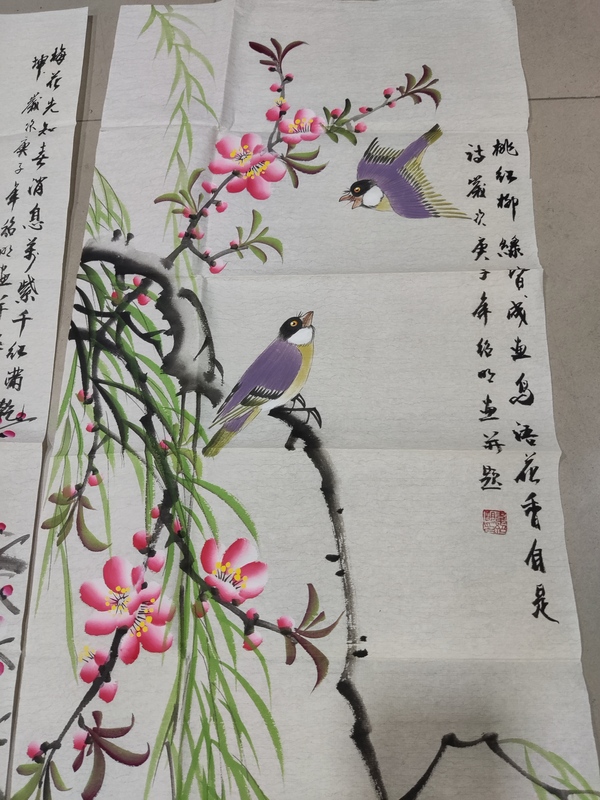 桃红柳綠皆成画鸟语花香自是
诗歲次庚子年绍明画并题
梅花先知春消息万紫千红满乾
坤歲次庚子年绍明画